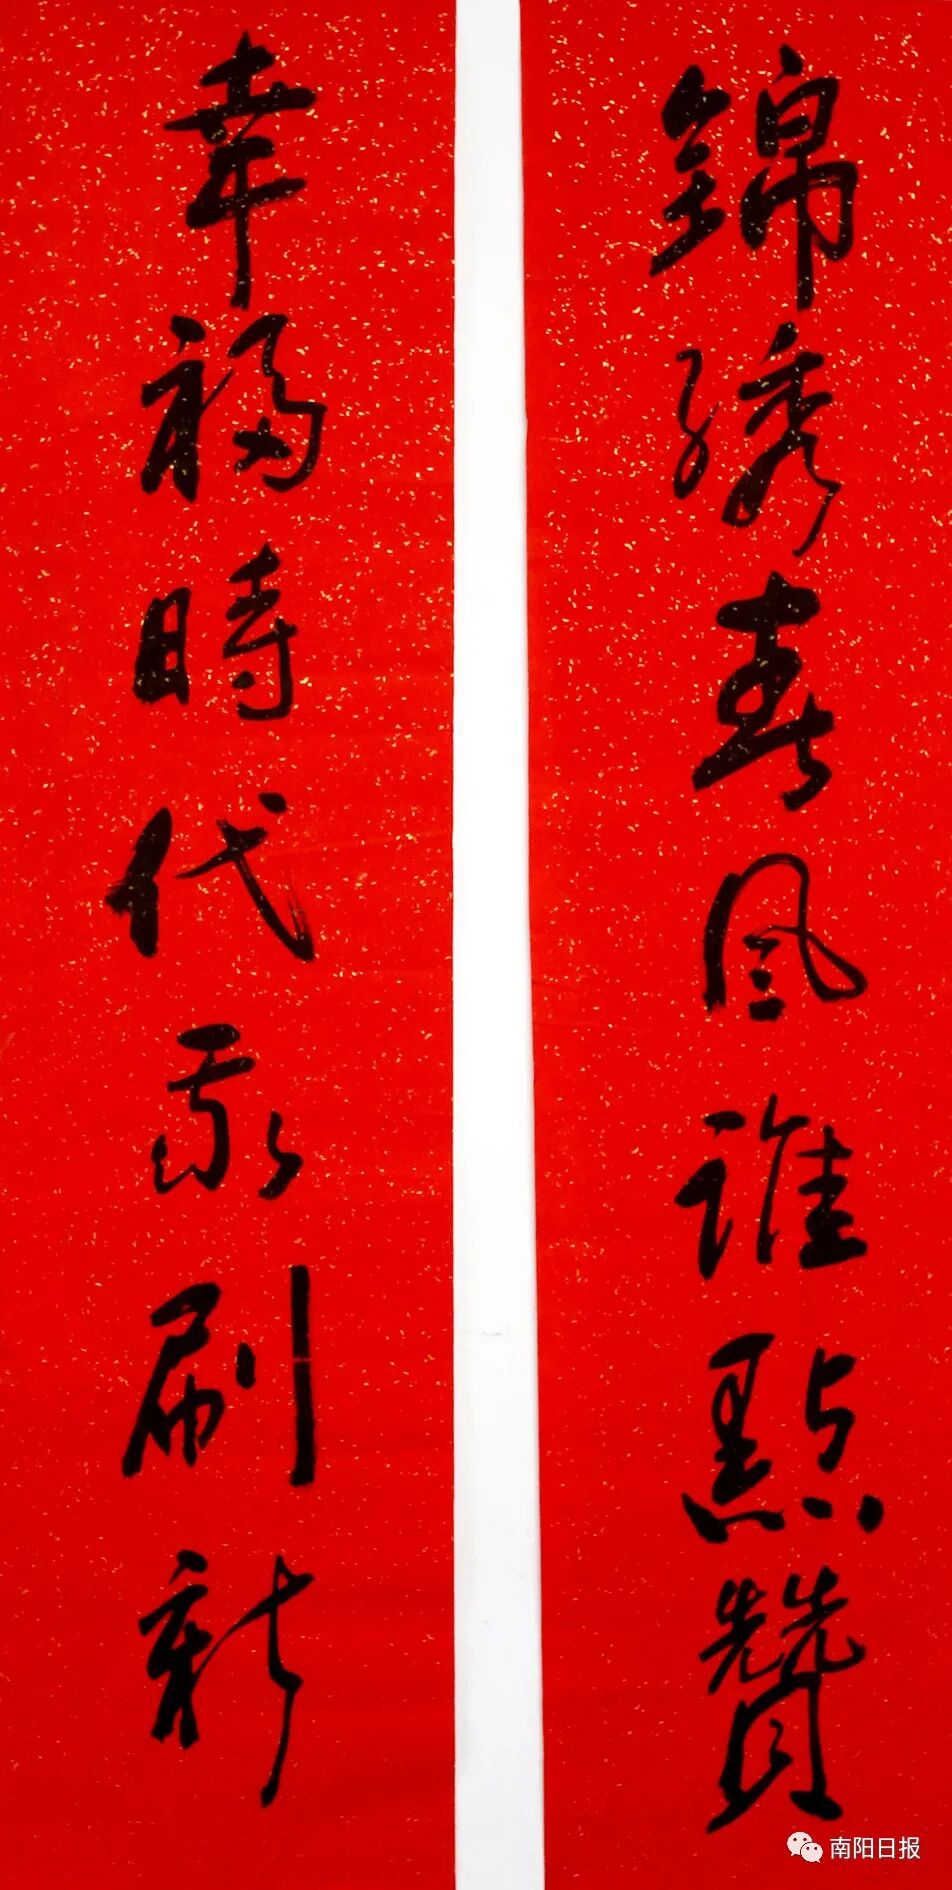 錦繡春風誰點贊
幸福時代我刷新
南阳日报